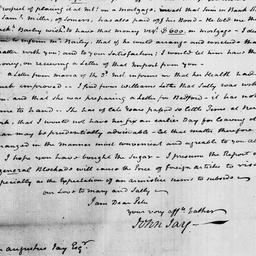 prospect of placing it at out on a mortgage,
Saml. Miller, of Somers, has also paid off his Bond — He told me that
Bailey wish'd to have that money vizt £600, on mortgage — I des
to inform Mr. Bailey, that if he could arrange and conclude that
matter with you, and to your satisfaction; I would let him have the
money, on receiving a Letter of that Import from you —
a Letter from maria of the 3d. Inst. informs me that her Health had
much improved — I find from Williams Letter that Sally was with
and that she was preparing a Letter for Bedford — it has not
come to hand — She has of late been passed so little Time at New
York, that I would not have her fix on an earlier Day for leaving it
than may be prudentially adviseable — Let that matter therefore
arranged in the manner most convenient and agreable to you all
I hope you have bought the Sugar — I presume the Report of
general Blockade will cause the Price of foreign articles to rise
especially as the Expectation of an armistice seems to subside
our Love to Mary and Sally —
I am Dear Peter
your very affte. Father
John Jay —
augustus Jay Esqr.